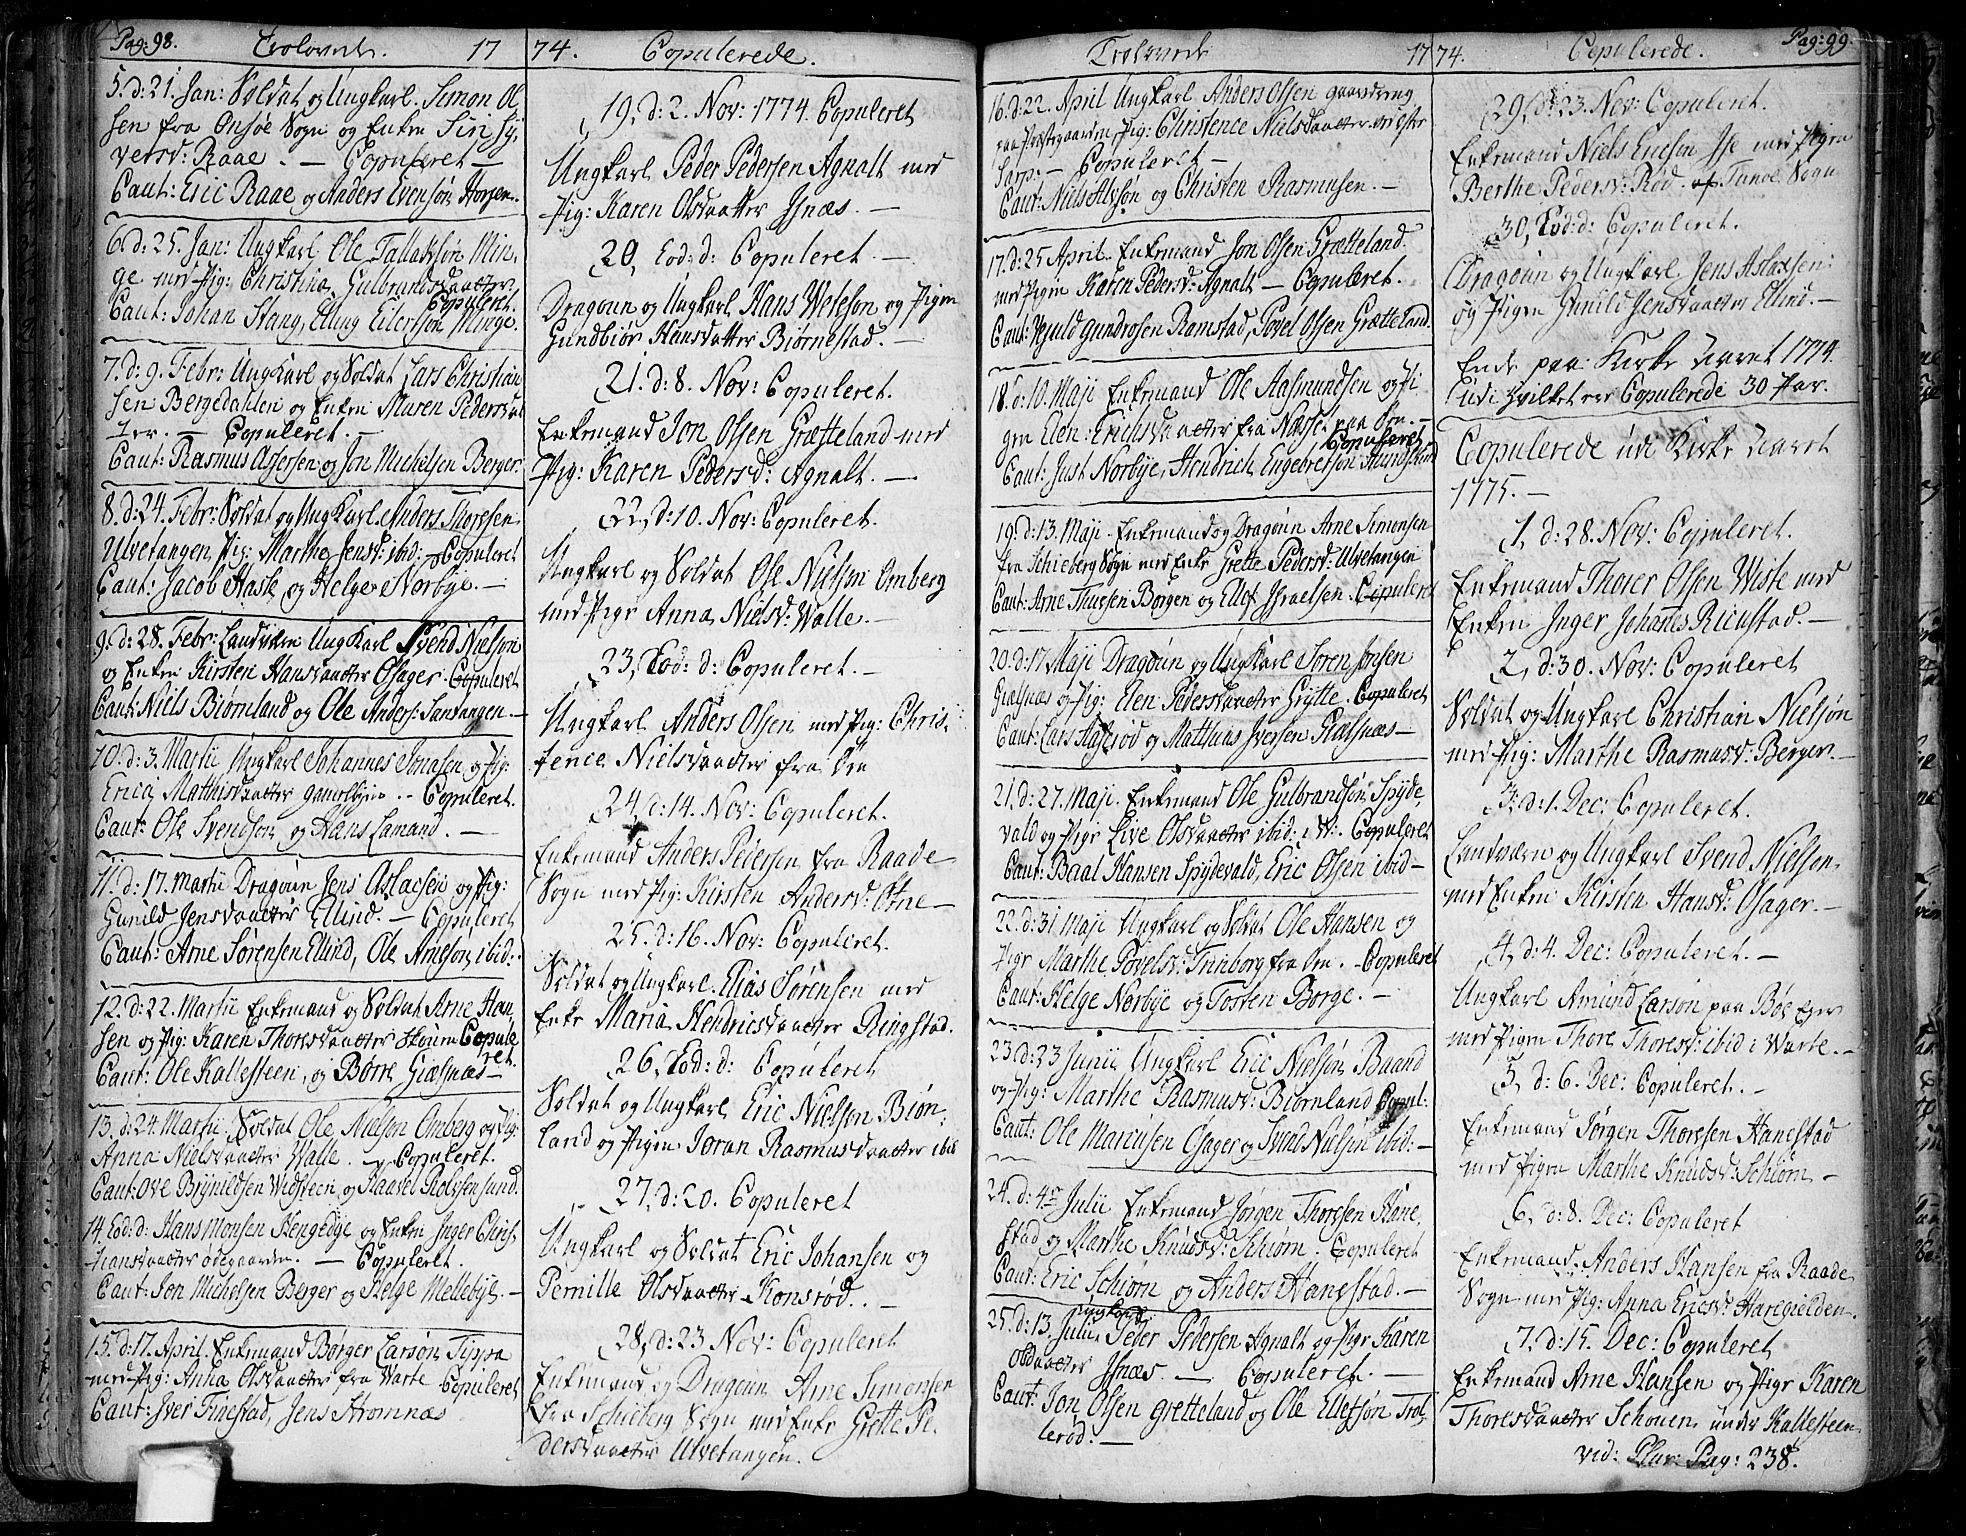 Pag: 98. Trolovede. 17
5. d: 21. Jan: Soldat og Ungkarl. Simon Ol
sen fra Onsøe Sogn og Enke Siri Sy,
versd: Raae. — Copuleret —
Caut: Eric Raae og Anders Evensøn Horsen.
6. d: 25. Jan: Ungkarl Ole Tallaksøn Min,
ge med Pig: Christina Gulbrandsdaatter
Copuleret.
Caut: Johan Stang, Elling Eilersøn Minge.
7. d: 9. Febr: Ungkarl og Soldat Lars Christian
sen Bergedahlen og Enke Maren Pedersdat
ter. — Copuleret. —
Caut: Rasmus Assersen og Jon Michelsen Berger.
8. d: 24. Febr: Soldat og Ungkarl Anders Thoresen
Ulvetangen Pig: Marthe Jensd: ibid: — Copuleret
Caut: Jacob Hasle og Helge Norbye. —
9. d: 28. Febr: Landværn Ungkarl Svend Nielsøn
og Enken Kirsten Hansdaatter Osager. Copuleret
Caut: Niels Biørnland og Ole Anders: Tantangen —
10. d: 3. Martii Ungkarl Johannes Jonasen og Pig:
Erica Matthisdaatter gamelbyen. — Copuleret.
Caut: Ole Svendsøn og Hans Lamand. —
11. d: 17. Martii Dragoun Jens Aslacsen og Pig:
Gunild Jensdaatter Ellind. — Copuleret
Caut: Arne Sørensen Ellind, Ole Arnesøn ibid: —
12. d: 22. Martii Enkemand og Soldat Arne Han
sen og Pig: Karen Thoresdaatter Skouen Copule
ret.
Caut: Ole Kallesteen, og Børre Giælsnæs —
13. d: 24. Martii. Soldat Ole Nielsøn Omberg og Pig:
Anna Nielsdaatter Walle. — Copuleret.
Caut: Ove Brynildsen Widsteen og Raavel Rolvsen Lund.
14. Eod: d: Hans Monsen Hengedye og Enken Inger Chris,
tiansdaatter ødegaarden. — Copuleret.
Caut: Jon Michelsen Berger og Helge Mellebye. —
15. d: 17. April. Enkemand Børger Larsøn Tippa
med Pig: Anna Olsdaatter fra Warte Copuleret
Caut: Iver Finestad, Jens Stromnæs
74. Copulerede.
19, d: 2. Nov: 1774. Copuleret
Ungkarl Peder Pedersen Agnalt med
Pig: Karen Olsdaatter Isnæs. —
20, Eod: d: Copuleret. —
Dragoun og Ungkarl Hans Wetesøn og Pigen
Gundbiør Hansdatter Biørnestad. —
21. d: 8. Nov: Copuleret.
Enkemand Jon Olsen Grætteland med
Pig: Karen Pedersd: Agnalt. —
22, d: 10. Nov: Copuleret.
Ungkarl og Soldat Ole Nielsøn Omberg
med Pige Anna Nielsd: Walle. —
23, Eod: d: Copuleret. —
Ungkarl Anders Olsen med Pig: Chris,
tence Nielsdaatter fra Øen
24, d: 14. Nov: Copuleret.
Enkemand Anders Pedersen fra Raade
Sogn med Pig: Kirsten Andersd: Østne —
25. d: 16. Nov: Copuleret.
Soldat og Ungkarl Elias Sørensen med
Enke Maria Hendricsdaatter Ringstad.
26, Eod: d: Copuleret
Soldat og Ungkarl Eric Nielsøn Biøn,
land og Pigen Joran Rasmusdaatter ibid
27, d: 20. Copuleret
Ungkarl og Soldat Eric Johansen og
Pernille Olsdaatter Konsrød. —
28, d: 23 Nov: Copuleret
Enkemand og Dragoun Arne Simonsen
fra Schieberg Sogn med Enke Grette Pe,
dersdaatter Ulvetangen.
Trolovede 17
16. d: 22. April Ungkarl Anders Olsen gaardreng
paa Præstegaarden Pig: Christence Nielsdaatter ved Øster
Sarp. — Copuleret —
Caut: Niels Alvsøn og Christen Rasmusen. —
17. d: 25 April. Enkemand Jon Olsen Grætteland.
med Pigen Karen Pedersd: Agnalt — Copuleret.
Caut: Knuld Gundrosen Ramstad, Povel Olsen Grætteland.
18. d: 10. Maji Enkemand Ole Aasmundsen og Pi
gen Elen: Erichsdaatter fra Næset paa Øen. —
Copuleret
Caut: Just Norbye, Hendrich Engebretsøn
19. d: 13. Maji. Enkemand og Dragoun Arne Simonsen
fra Schieberg Sogn med Enke Grette Pedersd: Ulvetangen
Caut: Arne Thuesen Borgen og Ellef Israelsen. Copuleret
20. d: 17. Maji Dragoun og Ungkarl Soren Jonsen
Giælsnæs og Pig: Elen Pedersdaatter Grytte. Copuleret
Caut: Lars Haserød og Matthias Iversen Gialsnæs —
21. d: 27. Maji. Enkemand Ole Gulbrandsøn Spyde,
vald og Pige Live Olsdaatter ibid: i W. Copuleret
Caut: Baal Hansen Spydevald, Eric Olsen ibid —
22. d: 31 Maji Ungkarl og Soldat Ole Hansen og
Pige Marthe Povelsd: Tunborg fra Øen. — Copuleret
Caut: Helge Norbye og Tosten Borge. —
23. d: 23 Junii Ungkarl Eric Nielsøn Baand
og Pig: Marthe Rasmusd: Biørnland Copul:
Caut: Ole Marcusen Osager og Svend Nielsen ibid: —
24. d: 4de Julii Enkemand Jørgen Thoresen Hane,
stad og Marthe Knudsd: Schiørn. Copuleret
Caut: Eric Schiørn og Anders Hanestad. —
Ungkarl
25. d: 13. Julii Peder Pedersen Agnalt og Pige Karen
Olsdaatter Isnæs. — Copuleret. —
Caut: Jon Olsen Gretteland og Ole Ellefsøn Trol,
lerød. —
74. Copulerede. Pag: 99.
29, d: 23. Nov: Copuleret.
Enkemand Niels Ericson Ise med Pigen
Berthe Pedersd: Rød af Tunøe Sogn
30, Eod: d: Copuleret.
Dragoun og Ungkarl Jens Aslaxsen
og Pigen Gunild Jensdaatter Ellind. —
Ende paa Kirke Aaret 1774.
udi hvilket ere Copulerede 30 Par.
Copulerede udi Kirke Aaret
1775. —
1, d: 28. Nov: Copuleret.
Enkemand Thorer Olsen Wiste med
Enken Inger Johanes Rienstad. —
2, d: 30. Nov: Copuleret
Soldat og Ungkarl Christian Nielsøn
med Pig: Marthe Rasmusd: Berger. —
3. d: 1. Dec: Copuleret.
Landværn og Ungkarl Svend Nielsen,
med Enken Kirsten Hansd: Osager. —
4, d: 4. Dec: Copuleret. —
Ungkarl Amund Larsøn paa Bøe Eger
med Pigen Thore Thoresd: ibid i Warte. —
5, d: 6. Dec: Copuleret. —
Enkemand Jørgen Thoresen Hanestad
med Pigen Marthe Knudsd: Schiørn —
6, d: 8. Dec: Copuleret
Enkemand. Anders Hansen fra Raade
Sogn med Pig: Anna Ericsd: Haregielden.
7. d: 15. Dec: Copuleret
Enkemand Arne Hansen og Pige Karen
Thoresdaatter Schouen under Kallesteen
vid: Plur: Pag: 238.